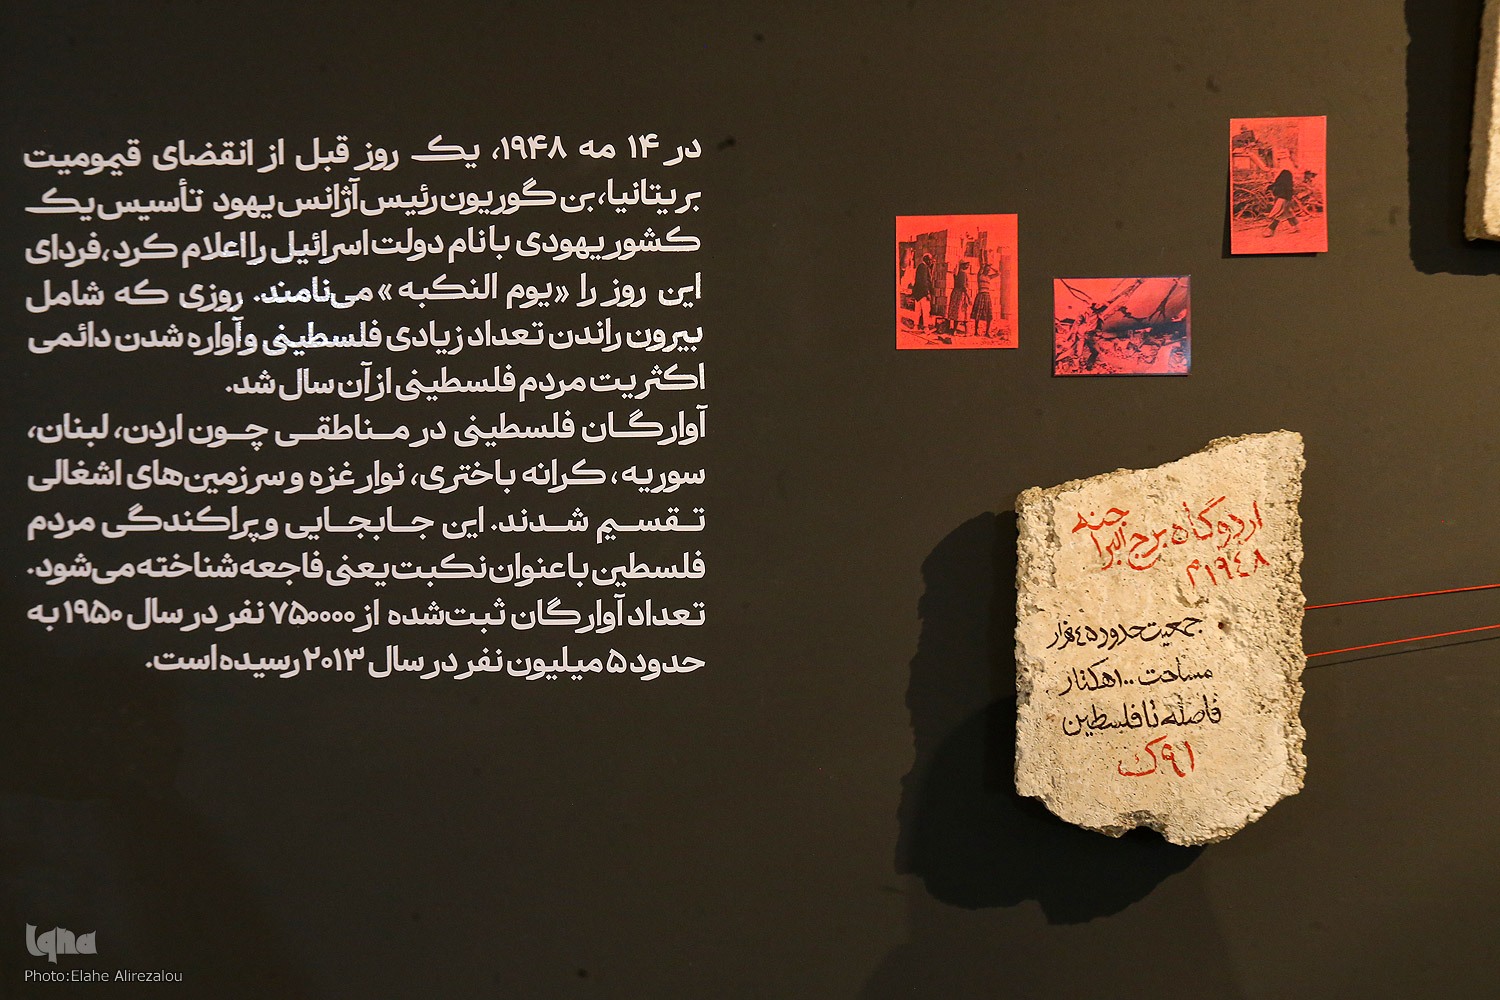 در ۱۴ مه ۱۹۴۸، یک روز قبل از انقضای قیمومیت
بریتانیا، بن گوریون رئیس آژانس یهود تأسیس یک
کشور یهودی با نام دولت اسرائیل را اعلام کرد، فردای
این روز را «یوم النکبه» می‌نامند. روزی که شامل
بیرون راندن تعداد زیادی فلسطینی و آواره شدن دائمی
اکثریت مردم فلسطینی از آن سال شد.
آوارگان فلسطینی در مناطقی چون اردن، لبنان،
سوریه، کرانه باختری، نوار غزه و سرزمین‌های اشغالی
تقسیم شدند. این جابجایی و پراکندگی مردم
فلسطین با عنوان نکبت یعنی فاجعه شناخته می‌شود.
تعداد آوارگان ثبت‌شده از ۷۵۰۰۰۰ نفر در سال ۱۹۵۰ به
حدود ۵ میلیون نفر در سال ۲۰۱۳ رسیده است.
اردوگاه برج البراجنه
۱۹٤۸م
جمعیت حدود ٤۵ هزار
مساحت ۱۰۰ هکتار
فاصله تا فلسطین
۹۱ ک
iqna
Photo:Elahe Alirezalou